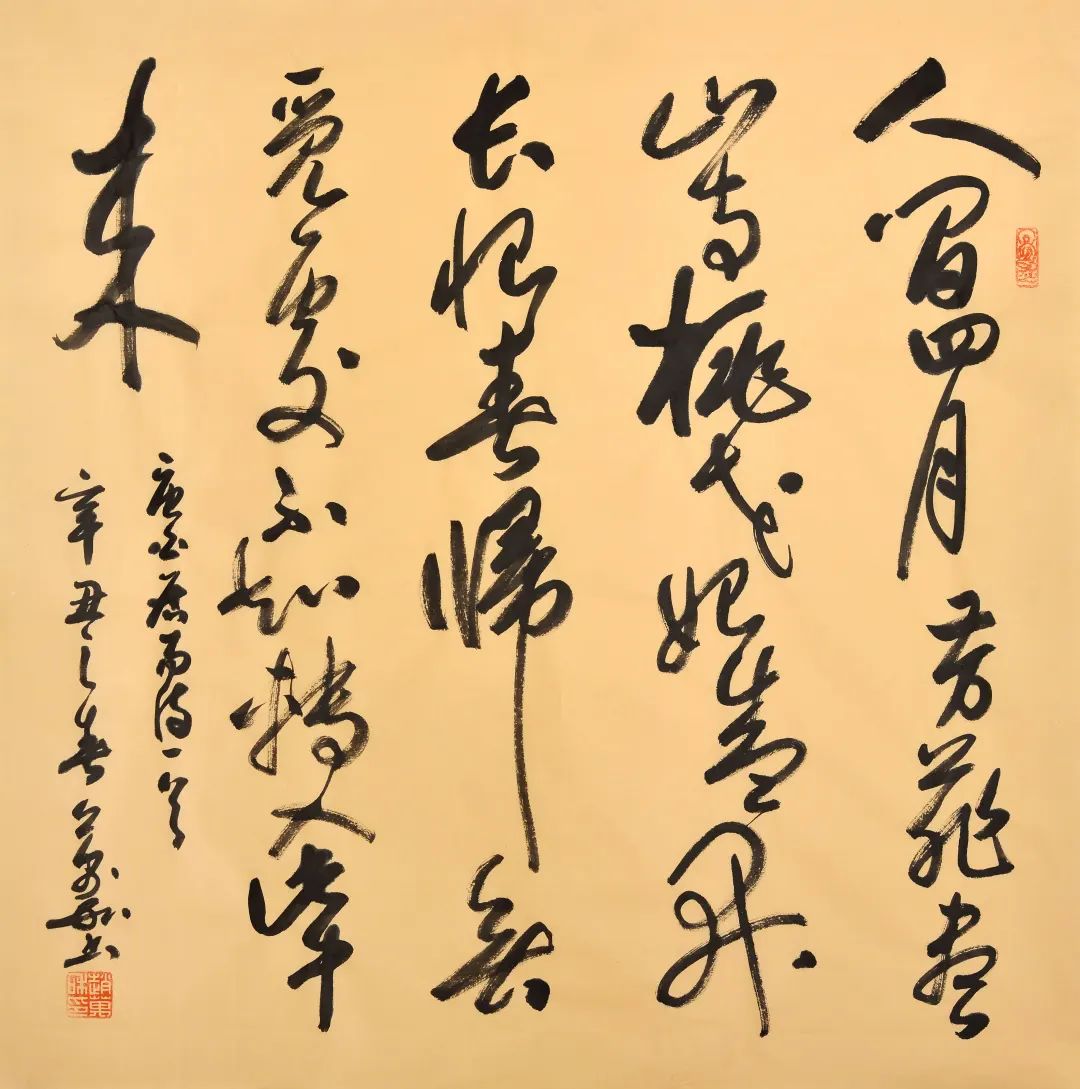 人間四月芳菲盡
山寺桃花始盛開
長恨春歸無
覓處不知轉入此中
來
唐白居易詩一首
辛丑之春萬書